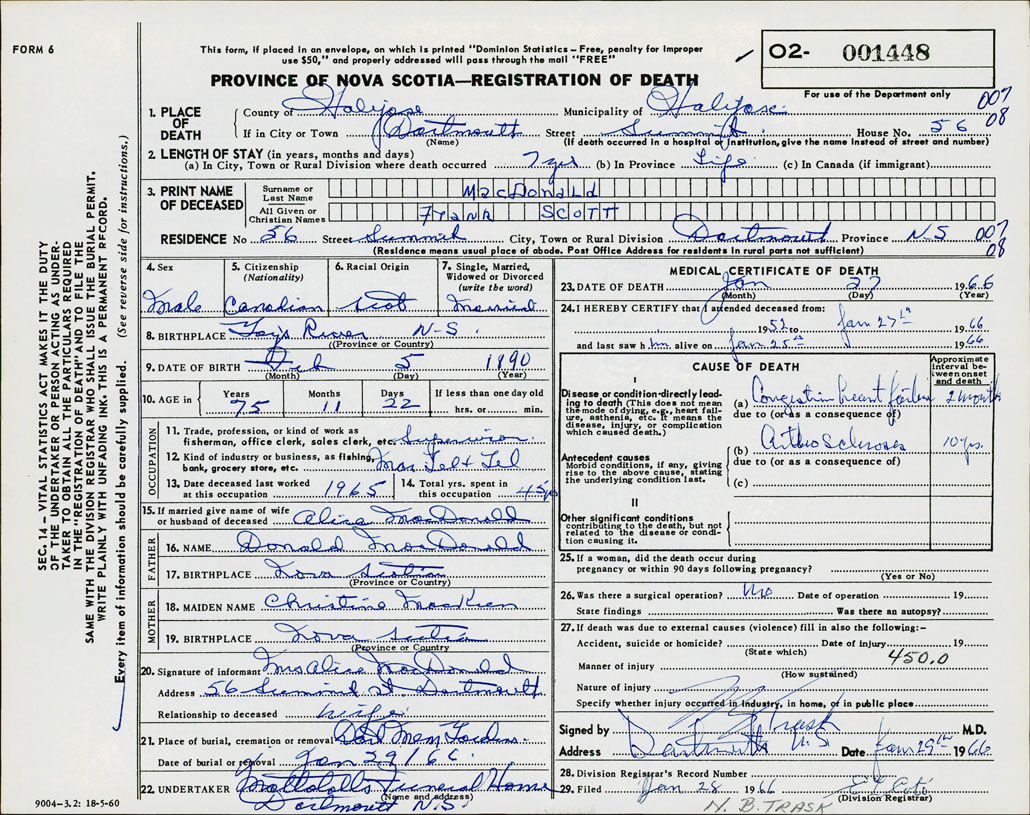 FORM 6
This form, if placed in an envelope, on which is printed "Dominion Statistics—Free, penalty for improper
use $50," and properly addressed will pass through the mail "FREE"
PROVINCE OF NOVA SCOTIA—REGISTRATION OF DEATH
O2- 001448
For use of the Department only
007
08
SEC. 14 — VITAL STATISTICS ACT MAKES IT THE DUTY
OF THE UNDERTAKER OR PERSON ACTING AS UNDER-
TAKER TO OBTAIN ALL THE PARTICULARS REQUIRED
IN THE "REGISTRATION OF DEATH" AND TO FILE THE
SAME WITH THE DIVISION REGISTRAR WHO SHALL ISSUE THE BURIAL PERMIT.
WRITE PLAINLY WITH UNFADING INK. THIS IS A PERMANENT RECORD.
Every item of information should be carefully supplied. (See reverse side for instructions.)
1. PLACE OF DEATH
County of Halifax Municipality of Halifax
If in City or Town Dartmouth Street Summit House No. 56
(Name) (If death occurred in a hospital or institution, give the name instead of street and number)
2. LENGTH OF STAY (in years, months and days)
(a) In City, Town or Rural Division where death occurred 7 yrs (b) In Province Life (c) In Canada (if immigrant)
3. PRINT NAME OF DECEASED
Surname or Last Name MacDonald
All Given or Christian Names Frank SCOTT
RESIDENCE No 56 Street Summit City, Town or Rural Division Dartmouth Province N.S 007
08
(Residence means usual place of abode. Post Office Address for residents in rural parts not sufficient)
4. Sex
Male
5. Citizenship (Nationality)
Canadian
6. Racial Origin
Scot
7. Single, Married, Widowed or Divorced (write the word)
Married
8. BIRTHPLACE Tays River N-S.
(Province or County)
9. DATE OF BIRTH Feb 5 1890
(Month) (Day) (Year)
10. AGE in
Years 75
Months 11
Days 22
If less than one day old
hrs. or min.
OCCUPATION
11. Trade, profession, or kind of work as
fisherman, office clerk, sales clerk, etc. Supervisor
12. Kind of industry or business, as fishing,
bank, grocery store, etc. Mar Tel & Tel
13. Date deceased last worked at this occupation 1965
14. Total yrs. spent in this occupation 45
15. If married give name of wife
or husband of deceased Alice MacDonald
FATHER
16. NAME Donald MacDonald
17. BIRTHPLACE Nova Scotia
(Province or County)
MOTHER
18. MAIDEN NAME Christine
19. BIRTHPLACE Nova Scotia
(Province or County)
20. Signature of informant Mrs Alice MacDonald
Address 56 Summit St. Dartmouth
Relationship to deceased wife
21. Place of burial, cremation or removal Dart Mem Gardens
Date of burial or removal Jan 29/66
22. UNDERTAKER Mattatall's Funeral Home
(Name and address)
Dartmouth N.S
9004—3.2: 18-5-60
MEDICAL CERTIFICATE OF DEATH
23. DATE OF DEATH Jan 27 1966
(Month) (Day) (Year)
24. I HEREBY CERTIFY that I attended deceased from:
1952 to Jan 27th 1966
and last saw him alive on Jan 25th 1966
CAUSE OF DEATH
Approximate interval between onset and death
I
Disease or condition directly lead-
ing to death (This does not mean
the mode of dying, e.g., heart fail-
ure, asthenia, etc. It means the
disease, injury, or complication
which caused death.)
(a) Congestive heart failure 2 months
due to (or as a consequence of)
(b) Arteriosclerosis 10 yrs.
Antecedent causes
Morbid conditions, if any, giving
rise to the above cause, stating
the underlying condition last.
due to (or as a consequence of)
(c)
II
Other significant conditions
contributing to the death, but not
related to the disease or condi-
tion causing it.
25. If a woman, did the death occur during
pregnancy or within 90 days following pregnancy?
(Yes or No)
26. Was there a surgical operation? No Date of operation 19
State findings Was there an autopsy?
27. If death was due to external causes (violence) fill in also the following:—
Accident, suicide or homicide? Date of injury 19
(State which)
450.0
Manner of injury
(How sustained)
Nature of injury
Specify whether injury occurred in industry, in home, or in public place
Signed by Trask M.D.
Address Dartmouth N.S Date Jan 29th 1966
28. Division Registrar's Record Number
29. Filed Jan 28 1966
(Division Registrar)
H. B. TRASK